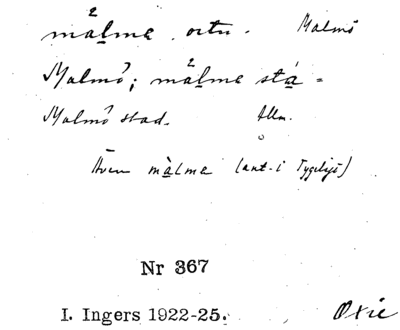 målme ortn. Malmö
Malmö; målme stá =
Malmö stad. Allm.
Även màlme (ant. i Tygelsjö)
Nr 367
I. Ingers 1922-25. Oxie